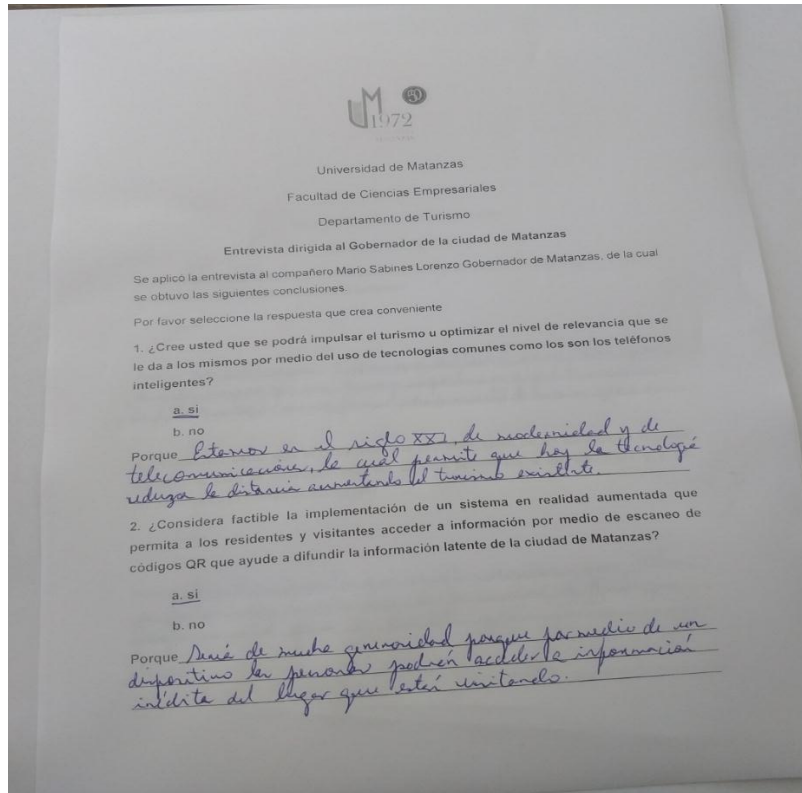 UM
50
1972
Universidad de Matanzas
Facultad de Ciencias Empresariales
Departamento de Turismo
Entrevista dirigida al Gobernador de la ciudad de Matanzas
Se aplicó la entrevista al compañero Mario Sabines Lorenzo Gobernador de Matanzas, de la cual
se obtuvo las siguientes conclusiones.
Por favor seleccione la respuesta que crea conveniente
1. ¿Cree usted que se podrá impulsar el turismo u optimizar el nivel de relevancia que se
le da a los mismos por medio del uso de tecnologías comunes como los son los teléfonos
inteligentes?
a. si
b. no
Porque Estamos en el siglo XXI, de modernidad y de
telecomunicaciones, lo cual permite que hoy la tecnología
reduzca la distancia aumentando el turismo existente.
2. ¿Considera factible la implementación de un sistema en realidad aumentada que
permita a los residentes y visitantes acceder a información por medio de escaneo de
códigos QR que ayude a difundir la información latente de la ciudad de Matanzas?
a. si
b. no
Porque Sería de mucha generosidad porque por medio de un
dispositivo las personas podrán acceder a información
inédita del lugar que están visitando.